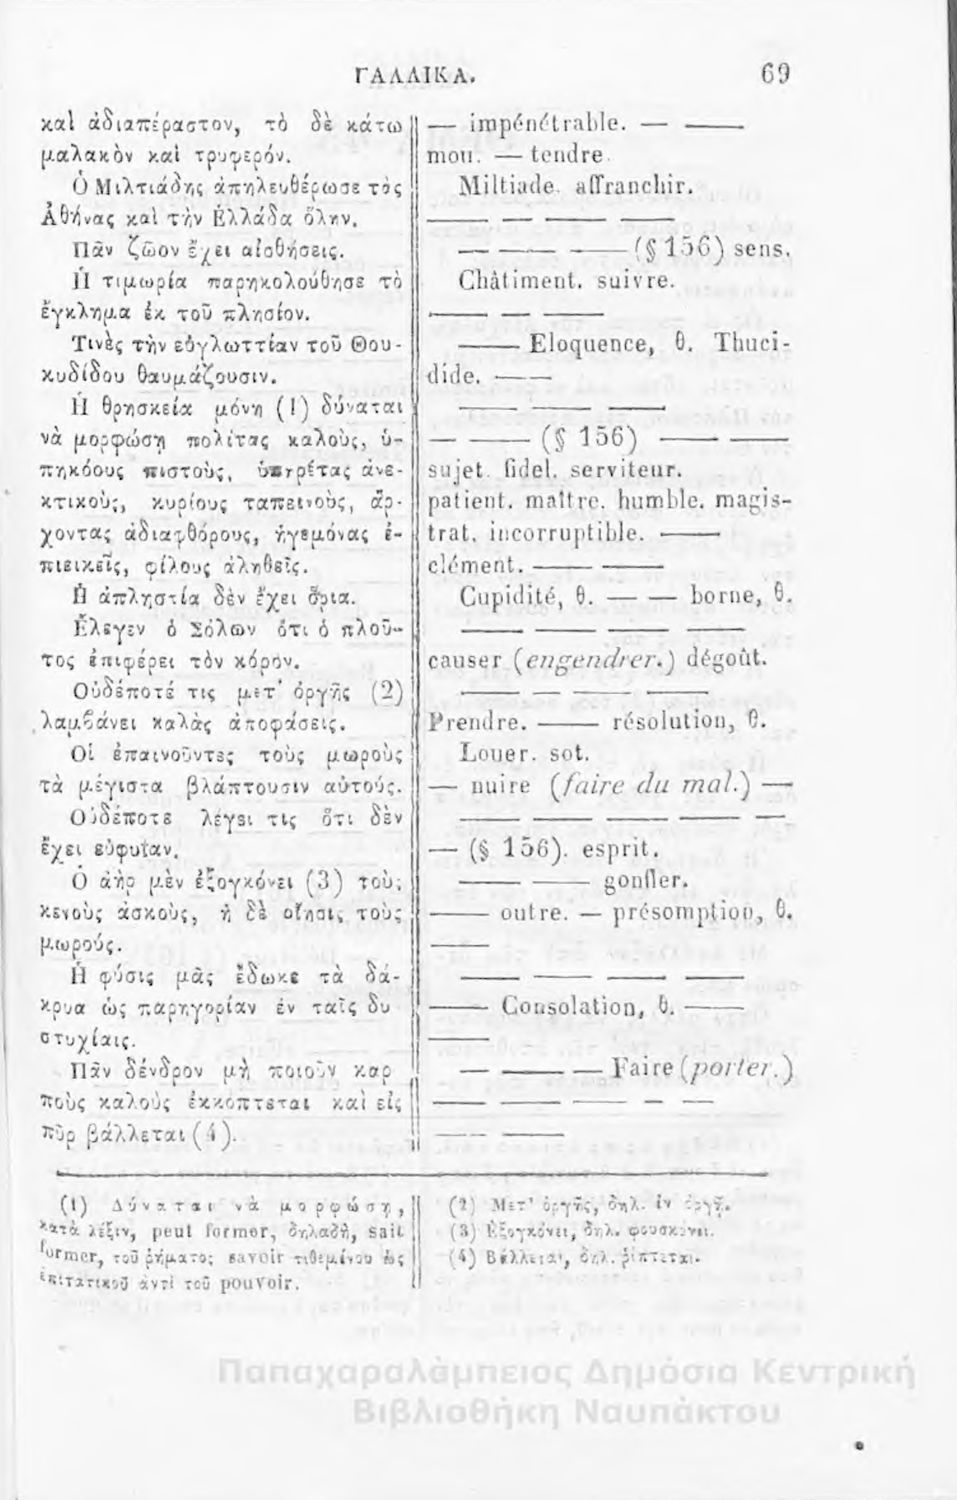 ΓΑΛΛΙΚΑ. 69
καὶ ἀδιαπέραστον, τὸ δὲ κάτω
μαλακὸν καὶ τρυφερόν.
Ὁ Μιλτιάδης ἀπηλευθέρωσε τὰς
Ἀθήνας καὶ τὴν Ἑλλάδα ὅλην.
Πᾶν ζῶον ἔχει αἰσθήσεις.
Ἡ τιμωρία παρηκολούθησε τὸ
ἔγκλημα ἐκ τοῦ πλησίον.
Τινὲς τὴν εὐγλωττίαν τοῦ Θου-
κυδίδου θαυμάζουσιν.
Ἡ θρησκεία μόνη (1) δύναται
νὰ μορφώσῃ πολίτας καλοὺς, ὑ-
πηκόους πιστοὺς, ὑπηρέτας ἀνε-
κτικοὺς, κυρίους ταπεινοὺς, ἄρ-
χοντας ἀδιαφθόρους, ἡγεμόνας ἐ-
πιεικεῖς, φίλους ἀληθεῖς.
Ἡ ἀπληστία δὲν ἔχει ὅρια.
Ἔλεγεν ὁ Σόλων ὅτι ὁ πλοῦ-
τος ἐπιφέρει τὸν κόρον.
Οὐδέποτέ τις μετ' ὀργῆς (2)
λαμβάνει καλὰς ἀποφάσεις.
Οἱ ἐπαινοῦντες τοὺς μωροὺς
τὰ μέγιστα βλάπτουσιν αὐτούς.
Οὐδέποτε λέγει τις ὅτι δὲν
ἔχει εὐφυΐαν.
Ὁ ἀὴρ μὲν ἐξογκόνει (3) τοὺς
κενοὺς ἀσκοὺς, ἡ δὲ οἴησις τοὺς
μωρούς.
Ἡ φύσις μᾶς ἔδωκε τὰ δά-
κρυα ὡς παρηγορίαν ἐν ταῖς δυ
στυχίαις.
Πᾶν δένδρον μὴ ποιοῦν καρ
ποὺς καλοὺς ἐκκόπτεται καὶ εἰς
πῦρ βάλλεται (4).
— impénétrable. — ——
mou. — tendre.
Miltiade. affranchir.
—— — —— ——
—— — —— (§ 156) sens.
Châtiment. suivre.
—— — ——
—— Eloquence, θ. Thuci-
dide. ——
—— — —— ——
— —— (§ 156) —— ——
sujet. fidel. serviteur.
patient. maître. humble. magis-
trat. incorruptible. ——
clément. —— ——
Cupidité, θ. — — borne, θ.
—— — —— — ——
causer (engendrer.) dégoût.
—— — — — ——
Prendre. —— résolution, θ.
Louer. sot.
— nuire (faire du mal.) —
—— —— — —— —
— (§ 156). esprit.
—— —— gonfler.
—— outre. — présomption, θ.
——
—— — —— ——
—— Consolation, θ. ——
——
— —— — Faire (porter.)
—— —— —— — —
—— ——
(1) Δύναται νὰ μορφώσῃ,
κατὰ λέξιν, peut former, δηλαδὴ, sait
former, τοῦ ῥήματος savoir τιθεμένου ὡς
ἐπιτατικοῦ ἀντὶ τοῦ pouvoir.
(2) Μετ' ὀργῆς, δηλ. ἐν ὀργῇ.
(3) Ἐξογκόνει, δηλ. φουσκόνει.
(4) Βάλλεται, δηλ. ῥίπτεται.
Παπαχαραλάμπειος Δημόσια Κεντρική
Βιβλιοθήκη Ναυπάκτου